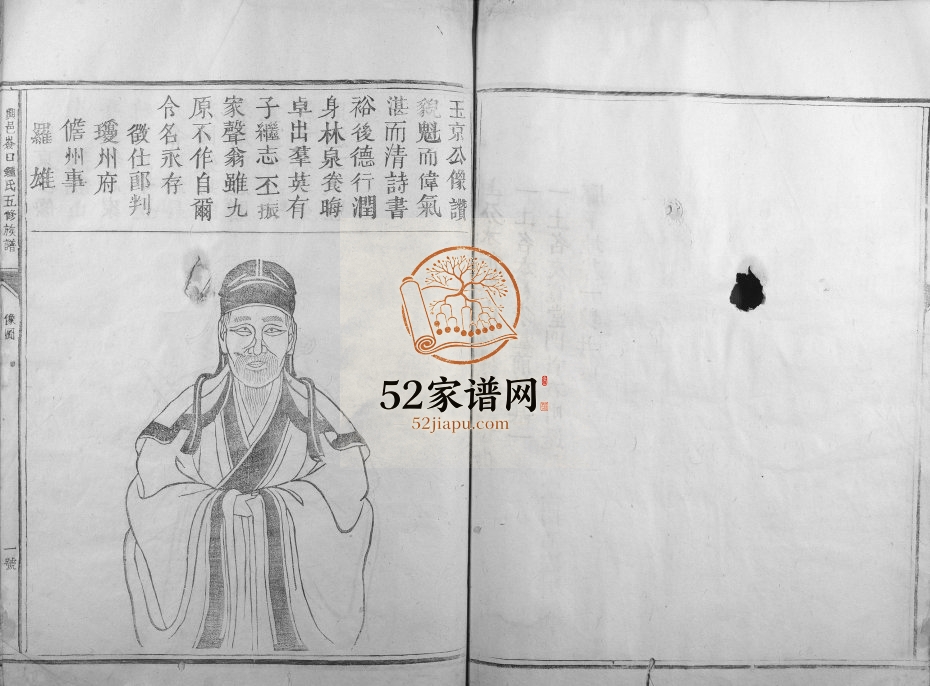 玉京公像讚
貌魁而偉氣
湛而清詩書
裕後德行潤
身林泉養晦
卓出羣英有
子繼志丕振
家聲翁雖九
原不作自爾
令名永存
徵仕郎判
瓊州府
儋州事
羅雄
口鍾氏五修族譜
像圖
一號
52家谱网
52jiapu.com